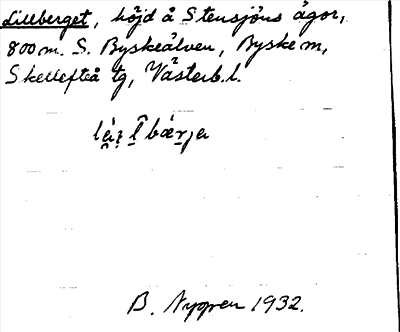 Lilleberget, höjd å Stensjöns ägor,
800 m. S. Byskeälven, Byske sn,
Skellefteå tg, Västerb. l.
B. Nygren 1932.